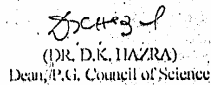 (DR. D.K. HAZRA)
Dean, P.G. Council of Science